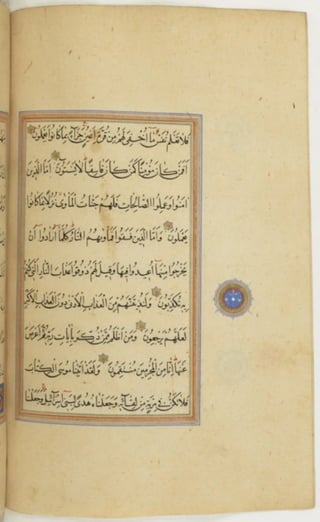 فلا تعلم نفس ما اخفى لهم من قرة اعين جزاء بما كانوا يعملون
افمن كان مؤمنا كمن كان فاسقا لا يستون اما الذين
امنوا وعملوا الصالحات فلهم جنات المأوى نزلا بما كانوا
يعملون واما الذين فسقوا فمأويهم النار كلما ارادوا ان
يخرجوا منها اعيدوا فيها وقيل لهم ذوقوا عذاب النار الذي كنتم
به تكذبون ولنذيقنهم من العذاب الادنى دون العذاب الاكبر
لعلهم يرجعون ومن اظلم ممن ذكر بايات ربه ثم اعرض
عنها انا من المجرمين منتقمون ولقد اتينا موسى الكتاب
فلا تكن في مرية من لقائه وجعلناه هدى لبني اسرائيل وجعلنا